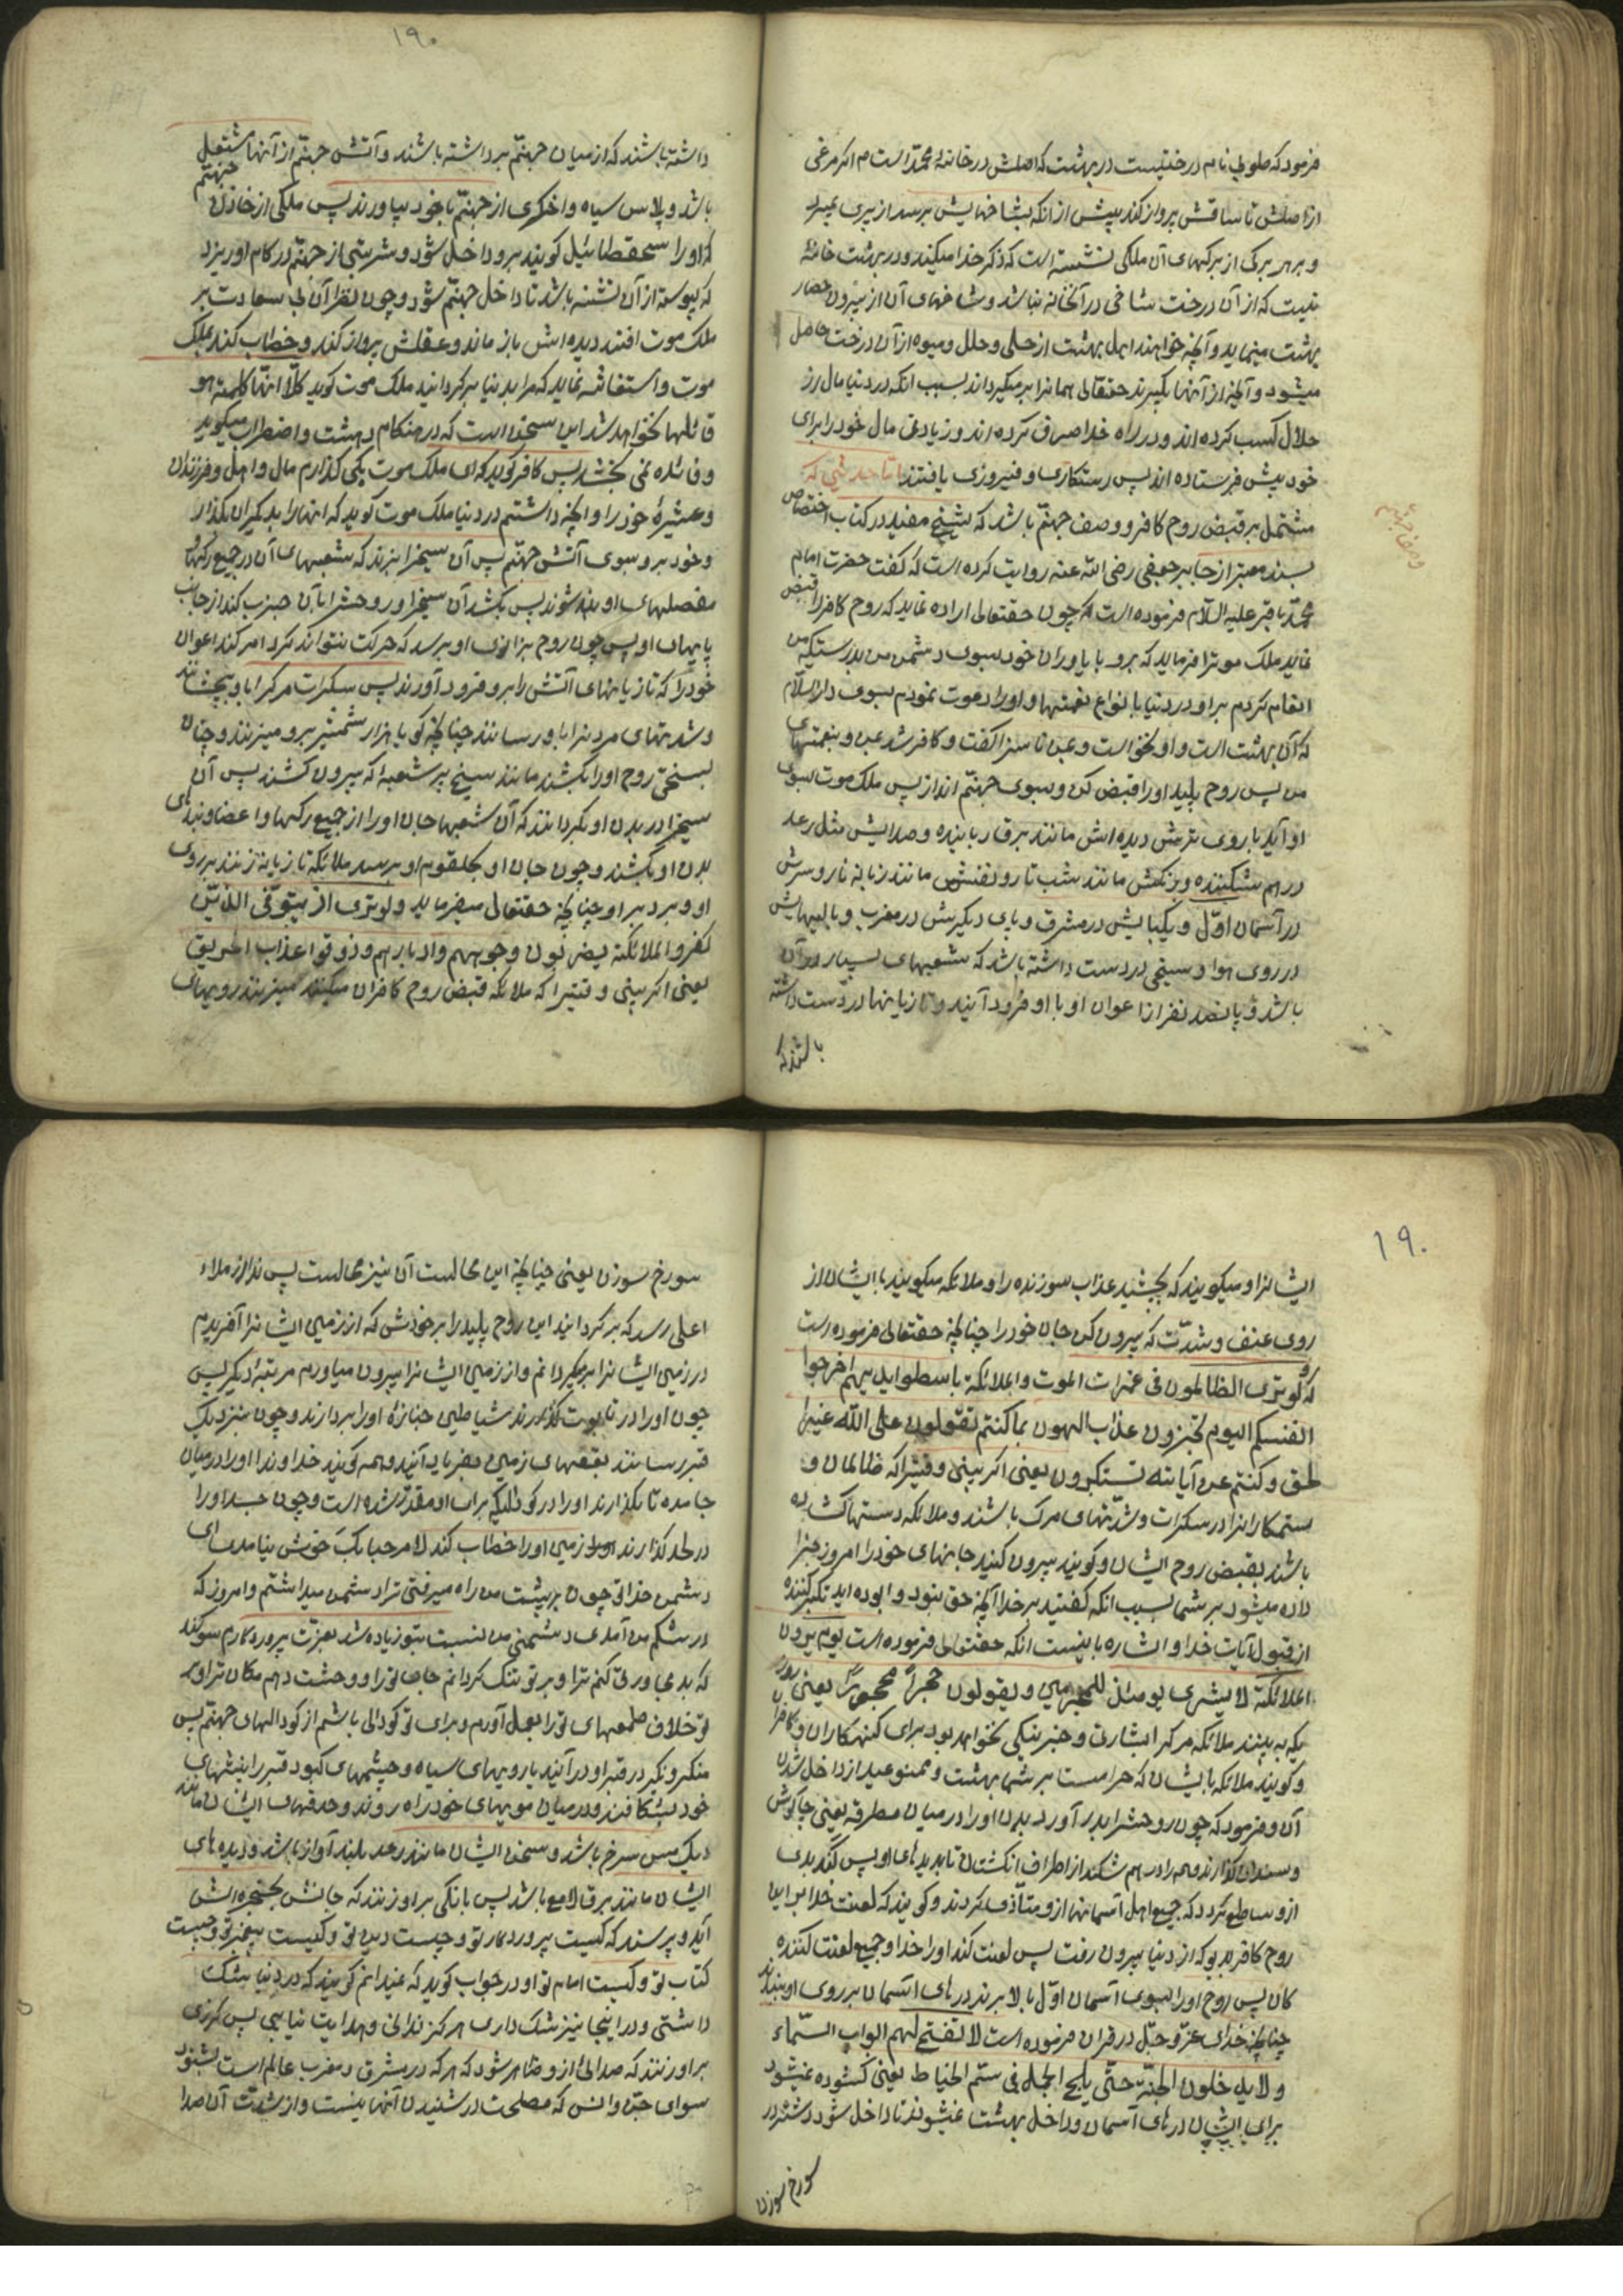 فرمود که طوبی نام درختیست در بهشت که اصلش در خانهٔ محمّد است م اگر مرغی
از اصلش تا ساقش پرواز کند پیش از آنکه بشاخهایش برسد از پیری بمیرد
و بر هر برک از برکهای آن ملکی نشسته است که ذکر خدا میکند و در بهشت خانهٔ
نیست که از آن درخت شاخی در آنخانه نباشد و شاخهای آن از بیرون حصار
بهشت مینماید و آنچه خواهند اهل بهشت از حلی و حلل و میوه از آن درخت حاصل
میشود و آنچه از آنها بگیرند حقتعالی همانرا بر میگرداند بسبب آنکه در دنیا مال از
حلال کسب کرده اند و در راه خدا صرف کرده اند و زیادتی مال خود را برای
خود پیش فرستاده اند پس رستکاری و فیروزی یافتند امّا حدیثی که
مشتمل بر قبض روح کافر و وصف جهنّم باشد که شیخ مفید در کتاب اختصاص
بسند معتبر از جابر جعفی رضی الله عنه روایت کرده است که گفت حضرت امام
محمّد باقر علیه السّلام فرموده است که چون حقتعالی اراده نماید که روح کافر را قبض
نماید ملک موترا فرماید که برو با یاوران خود بسوی دشمن من بدرستیکه من
انعام کردم بر او در دنیا بانواع نعمتها و او را دعوت نمودم بسوی دار السّلام
که آن بهشت است و او نخواست و بمن ناسزا گفت و کافر شد بمن و بنعمتهای
من پس روح پلید او را قبض کن و بسوی جهنّم انداز پس ملک موت بسوی
او آید با روی ترش دیده اش مانند برق رباینده و صدایش مثل رعد
در هم شکننده و رنگش مانند شب تار و نفسش مانند زبانه نار و سرش
در آسمان اوّل و یکپایش در مشرق و پای دیگرش در مغرب و پایهایش
در روی هوا و سیخی در دست داشته باشد که شعبهای بسیار در آن
باشد و پانصد نفر از اعوان او با او فرود آیند و تازیانها در دست داشته
باشند که
وصف جهنّم
۱۹۰
داشته باشند که از میان جهنّم برداشته باشند و آتش جهنّم از آنها مشتعل
باشد و پلاس سیاه و اخگری از جهنّم با خود بیاورند پس ملکی از خازنان جهنّم
که او را سحقطائیل کویند برو داخل شود و شربتی از جهنّم در کام او ریزد
که پیوسته از آن تشنه باشد تا داخل جهنّم شود و چون نظر آن بی سعادت بر
ملک موت افتد دیده اش باز ماند و عقلش پرواز کند و خطاب کند بملک
موت و استغاثه نماید که مرا بدنیا برکردانید ملک موت کوید کلّا انّها کلمة هو
قائلها نخواهد شد این سخنی است که در هنکام دهشت و اضطراب میگوید
و فائده نمی بخشد پس کافر کوید که ای ملک موت بکی گذارم مال و اهل و فرزندان
و عشیرهٔ خود را و آنچه داشتم در دنیا ملک موت کوید که اینها را بدیگران بگذار
و خود برو بسوی آتش جهنّم پس آن سیخرا بزند که شعبهای آن در جمیع رکها و
مفصلهای او بند شوند پس بکشد آن سیخرا و روحشرا با آن جذب کند از جانب
پایهای او پس چون روح بزانوی او برسد که حرکت نتواند کرد امر کند اعوان
خود را که تازیانهای آتش را برو فرود آورند پس سکرات مرگ را باو بچشانند
و شدتهای مردنرا باو رسانند چنانچه کویا هزار شمشیر برو میزنند و چنان
بسختی روح او را بکشند مانند سیخ پر شعبه که بیرون کشند پس آن
سیخرا در بدن او بگردانند که آن شعبها جان او را از جمیع رکها و اعضا و بندهای
بدن او بکشند و چون جان او بحلقوم او برسد ملائکه تازیانه زنند بر روی
او و بر دبر او چنانچه حقتعالی میفرماید و لو تری اذ یتوفّی الذین
کفروا الملائکة یضربون وجوههم و ادبارهم و ذوقوا عذاب الحریق
یعنی اگر بینی وقتیرا که ملائکه قبض روح کافران میکنند میزنند رویهای
۱۹۰
ایشانرا و میکویند که بچشید عذاب سوزنده را و ملائکه میکویند با ایشان از
روی عنف و شدّت که بیرون کن جان خود را چنانچه حقتعالی فرموده است
که و لو تری الظالمون فی غمرات الموت و الملائکة باسطوا ایدیهم اخرجوا
انفسکم الیوم تجزون عذاب الهون بما کنتم تقولون علی الله غیر
الحق و کنتم عن آیاته تستکبرون یعنی اگر بینی وقتیرا که ظالمان و
ستمکارانرا در سکرات و شدّتهای مرک باشند و ملائکه دستها کشاده
باشند بقبض روح ایشان و کویند بیرون کنید جانهای خود را امروز جزا
داده میشود بر شما بسبب آنکه گفتید بر خدا آنچه حق نبود و بوده اید تکبر کننده
از قبول آیات خدا و اشاره باینست آنکه حقتعالی فرموده است یوم یرون
الملائکة لا بشری یومئذ للمجرمین و یقولون حجراً محجوراً یعنی روز
یکه به بینند ملائکه مرک را بشارت و خبر نیکی نخواهد بود برای گنهکاران و کافران
و کویند ملائکه بایشان که حرامست بر شما بهشت و ممنوعید از داخل شدن
آن و فرمود که چون روحشرا بدر آورد بدن او را در میان مطرقه یعنی چاکوش
و سندان گذارند و هم را در هم شکند از اطراف انکشتان تا بدیدهای او پس گند بدی
ازو ساطع کردد که جمیع اهل آسمانها ازو متأذی کردند و کویند که لعنت خدا بر این
روح کافر بد بو که از دنیا بیرون رفت پس لعنت کند او را خدا و جمیع لعنت کننده
کان پس روح او را بسوی آسمان اوّل بالا برند درهای آسمان بر روی او ببندند
چنانچه خدای عزّ و جلّ در قران فرموده است لا تفتح لهم ابواب السّماء
و لا یدخلون الجنّة حتّی یلج الجمل فی سمّ الخیاط یعنی کشوده نمیشود
برای ایشان درهای آسمان و داخل بهشت نمیشوند تا داخل شود شتر در
سورخ سوزن
سورخ سوزن یعنی چنانچه این محالست آن نیز محالست پس ندا از ملاء
اعلی رسد که برکردانید این روح پلید را بر خودش که از زمین ایشانرا آفریدم
در زمین ایشانرا برمیگردانم و از زمین ایشانرا بیرون میاورم مرتبهٔ دیگر پس
چون او را در تابوت گذارند شیاطین جنازهٔ او را بردارند و چون بنزدیک
قبر رسانند بقعهای زمین بفریاد آیند و همه کویند خداوندا او را در میان
جا مده تا بگذارند او را در کودالیکه برای او مقدّر شده است و چون جسد او را
در لحد گذارند زمین او را خطاب کند لا مرحبا بک خوش نیامدی ای
دشمن خدا تو چون بر پشت من راه میرفتی ترا دشمن میداشتم و امروز که
در شکم من آمدی دشمنی من نسبت بتو زیاده شد بعزّت پروردکارم سوکند
که بدی باو رتی کنم ترا و بر تو تنک کردانم جای تو را و وحشت دهم مکان ترا و بر
تو خلاف طمعهای تو را بعمل آورم و برای تو کودالی باشم از کودالهای جهنّم پس
منکر و نکیر در قبر او در آیند با رویهای سیاه و چشمهای کبود قبر را بنیشهای
خود بشکافند و در میان مویهای خود راه روند و حدقهای ایشان مانند
دیک مس سرخ باشد و سخن ایشان مانند رعد بلند آواز باشد و دیده های
ایشان مانند برق لامع باشد پس بانکی بر او زنند که جانش بحنجره اش
آید و پرسند که کیست پروردکار تو و چیست دین تو و کیست پیغمبر تو و چیست
کتاب تو و کیست امام تو او در جواب کوید که نمیدانم کویند که در دنیا شک
داشتی و در اینجا نیز شک داری هرگز ندانی و هدایت نیابی پس کرزی
بر او زنند که صدائی ازو ظاهر شود که هر که در مشرق و مغرب عالم است بشنود
سوای جنّ و انس که مصلحت در شنیدن آنها نیست و از شدّت آن صدا